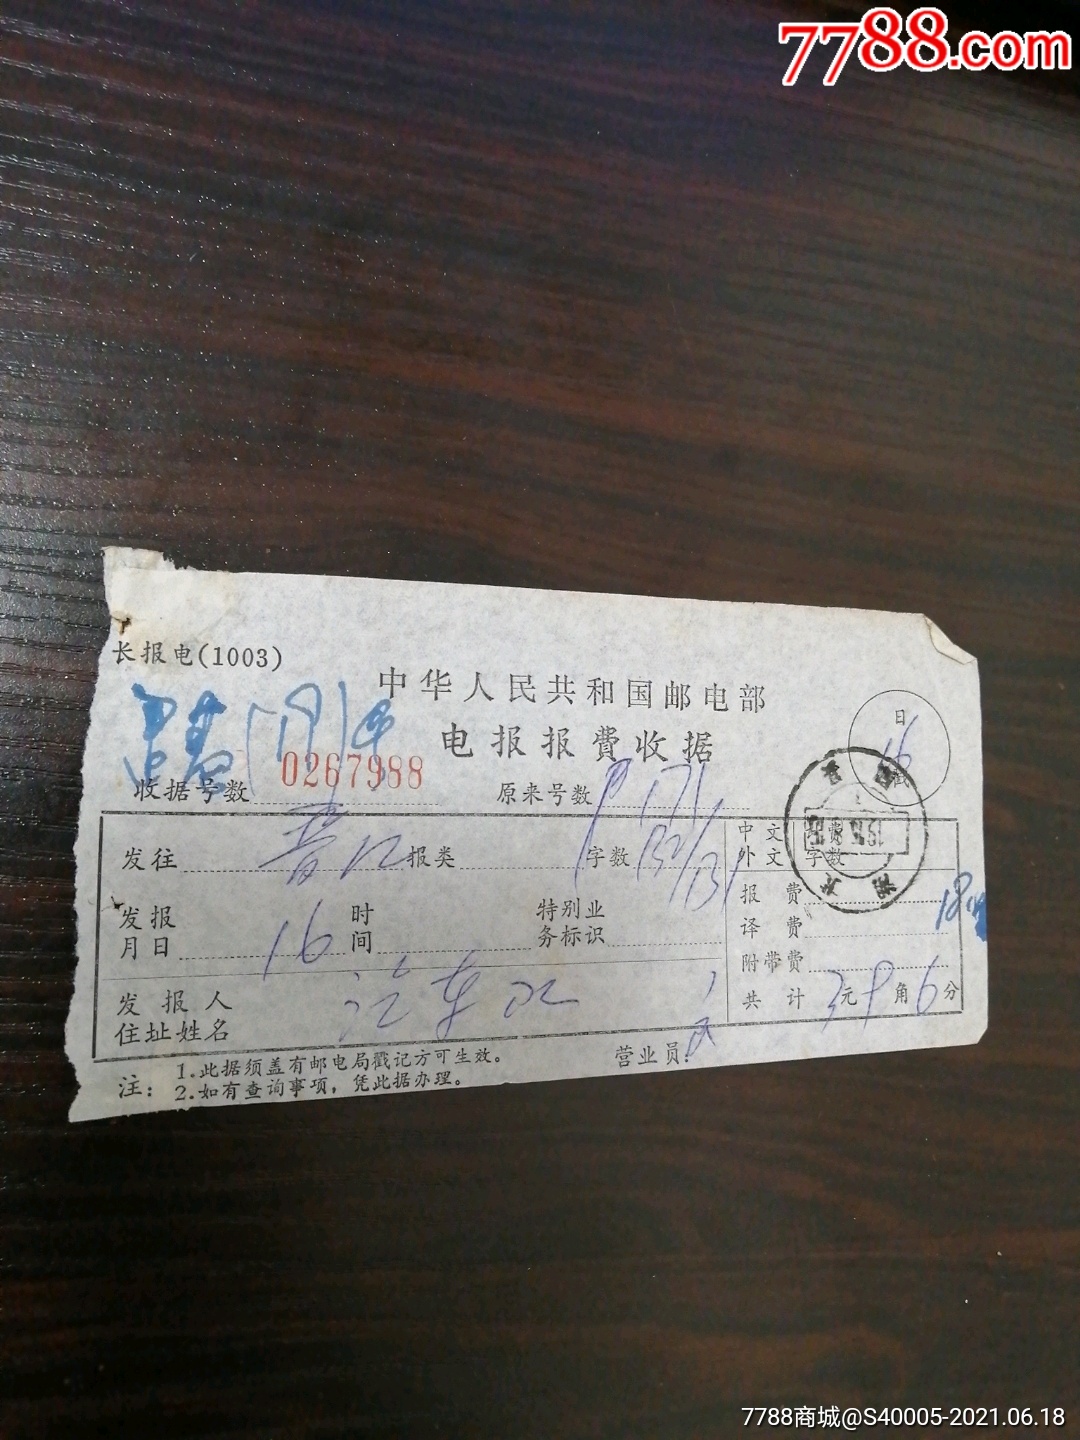 7788.com
长报电(1003)
中华人民共和国邮电部
电报报费收据
日
16
戳
收据号数 0267988
原来号数 171
发往 晋江 报类 字数 132/131
中文 译费
外文 字数
发报
月日 16 时
间
特别业
务标识
报费
译费
附带费
共计 3元9角6分
发报人
住址姓名
营业员
注：1.此据须盖有邮电局戳记方可生效。
2.如有查询事项，凭此据办理。
7788商城@S40005-2021.06.18